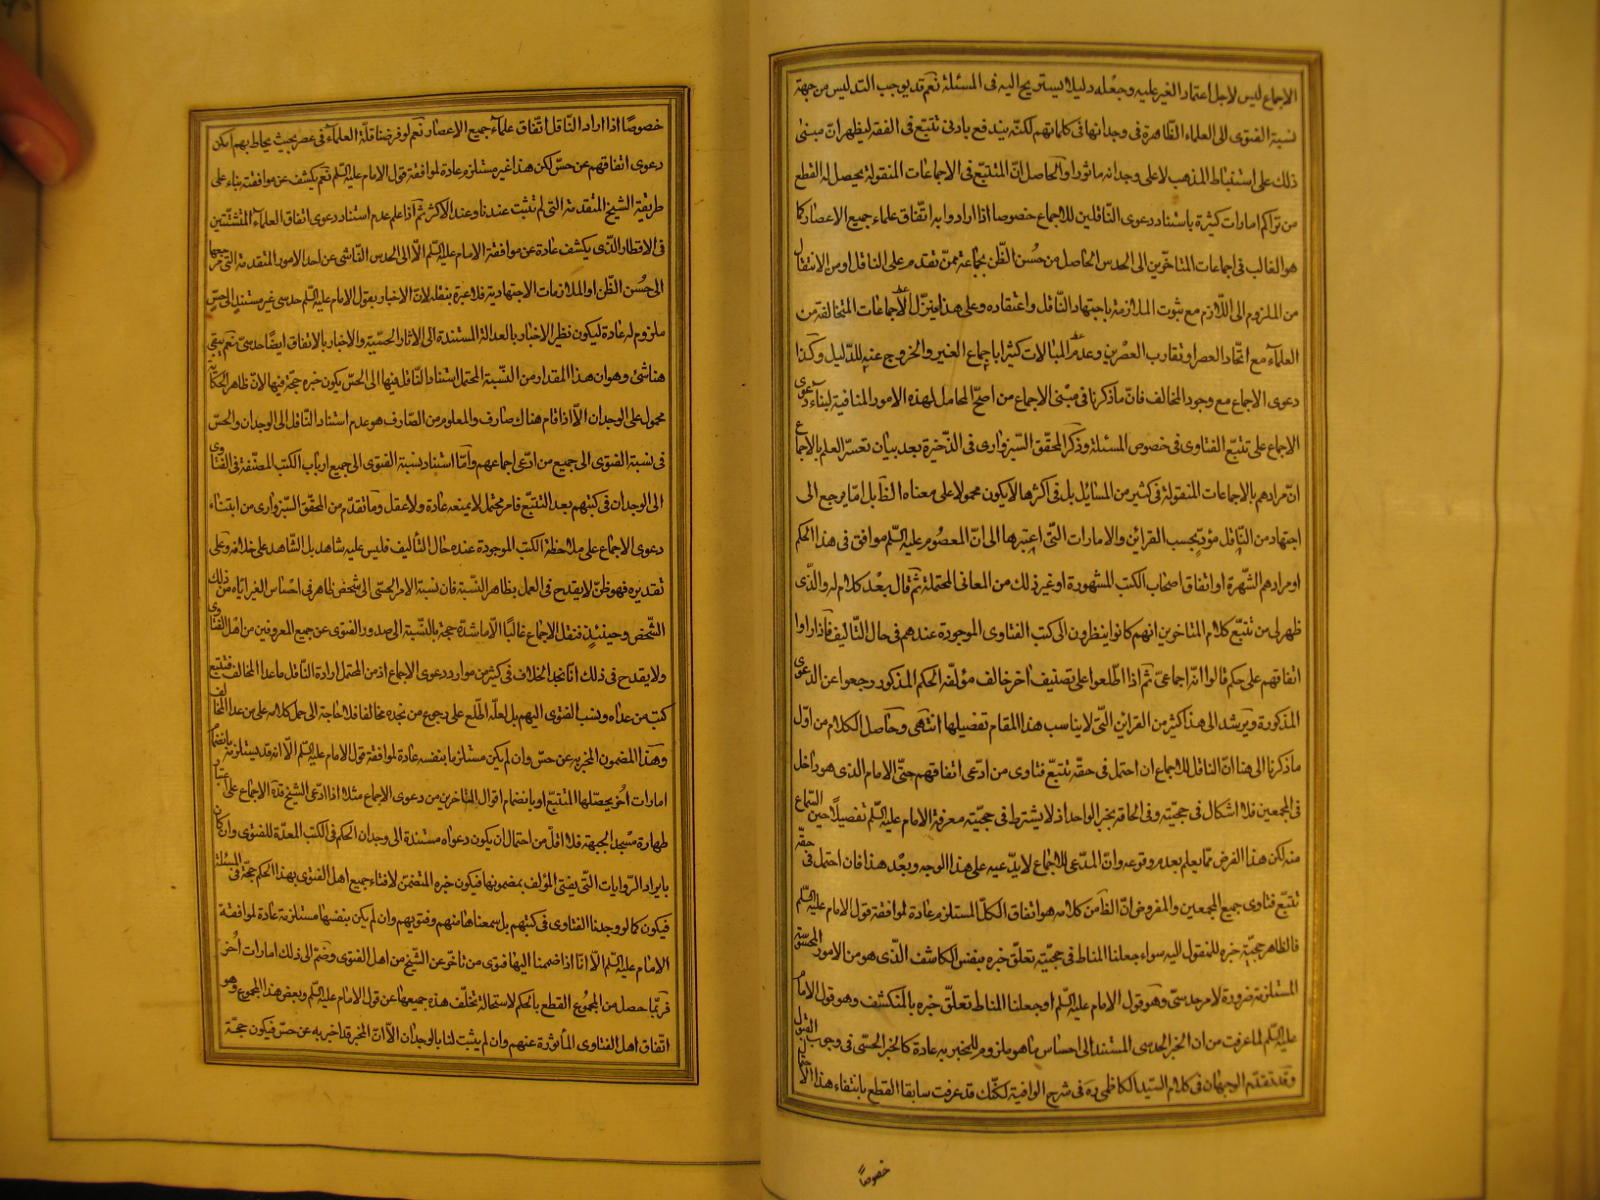 الاجماع ليس لاجل اعتماد الغير عليه وجعله دليلا يستريح اليه فى المسئلة نعم قد يوجب التدليس من جهة
نسبة الفتوى الى العلماء الظاهرة فى وجدانها فى كلماتهم لكنّه يندفع بادنى تتبع فى الفقه ليظهر انّ مبنى
ذلك على استنباط المذهب لا على وجدانه ماثورا والحاصل انّ المتتبّع فى الاجماعات المنقولة يحصل له القطع
من تراكم امارات كثيرة باستناد دعوى الناقلين للاجماع خصوصا اذا ارادوا به اتّفاق علماء جميع الاعصار كما
هو الغالب فى اجماعات المتاخّرين الى الحدس الحاصل من حُسن الظّن بجماعة ممّن تقدم على الناقل او من الانتقال
من الملزوم الى اللّازم مع ثبوت الملازمة باجتهاد النّاقل واعتقاده وعلى هذا ينزّل الاجماعات المتخالفة من
العلمآء مع اتّحاد العصر او تقارب العصرين وعدم المبالات كثيرا باجماع الغير والخروج عنه للدّليل وكذا
دعوى الاجماع مع وجود المخالف فانّ ما ذكرنا فى مبْنى الاجماع من اصحّ المحامل لهذه الامور المنافية لبناء دعوى
الاجماع على تتبّع الفتاوى فى خصوص المسئلة وذكر المحقّق السّبزوارى فى الذّخيرة بعد بيان تعسّر العلم بالاجماع
انّ مرادهم بالاجماعات المنقولة فى كثير من المسائل بل فى اكثرها لا يكون محمولا على معناه الظ بل امّا يرجع الى
اجتهاد من النّاقل مؤدٍ بحسب القرائن والامارات التّى اعتبرها الى انّ المعصُوم عليه السّلم موافق فى هذا الحكم
او مرادهم الشّهرة او اتفاق اصحاب الكتب المشهورة او غير ذلك من المعانى المحتملة ثمّ قال بعْد كلام له والّذى
ظهر لى من تتبّع كلام المتاخرين انهم كانوا ينظرون الى كتب الفتاوى الموجودة عندهم فى حال التّاليف فاذا راوا
اتفاقهم على حكم قالوا انّه اجماعىّ ثم اذا اطّلعوا على تصنيف اخر خالف مؤلّفه الحكم المذكور رجعوا عن الدعوى
المذكورة ويرشد الى هذا كثير من القرائن التّى لا يناسب هذا المقام تفصيلها انتهى وحاصل الكلام من اوّل
ما ذكرنا الى هنا انّ الناقل للاجماع ان احتمل فى حقّه تتبّع فتاوى من ادّعى اتفاقهم حتّى الامام الذى هو داخل
فى المجمعين فلا اشكال فى حجيّته وفى الحاقه بخبر الواحد اذ لا يشترط فى حجيّته معرفة الامام عليه السّلم تفصيلًا حين السّماع
منه لكن هذا الفرض ممّا يعلم بعدم وقوعه وانّ المدّعى للاجماع لا يدّعيه على هذا الوجه وبعْد هذا فان احتمل فى حقّه
تتبّع فتاوى جميع المجمعين والمفروض انّ الظ من كلامه هو اتفاق الكلّ المستلزم عادة لموافقة قول الامام عليه السّلم
فالظاهر حجيّة خبره للمنقول اليه سواء جعلنا المناط فى حجيّته تعلّق خبره بنفس الكاشف الّذى هو من الامور المحسوسة
المستلزمة ضرورة لامر حدسىّ وهو قول الامام عليه السّلم او جعلنا المناط تعلّق خبره بالمنكشف وهو قول الامام
عليه السّلم لما عرفت من ان الخبر الحدسى المستند الى احساس ما هو ملزوم للمخبر به عادة كالخبر الحسّى فى وجوب القبول
وقد تقدّم الوجهان فى كلام السّيد الكاظمى ره فى شرح الوافية لكنّك قد عرفت سابقا القطع بانتفاء هذا الاحتمال
خصوصًا
خصوصًا اذا اراد النّاقل اتّفاق علمآء جميع الاعصار نعم لو فرضنا قلّة العلمآء فى عصر بحيث يحاط بهم امكن
دعوى اتفاقهم عن حسّ لكن هذا غير مستلزم عادة لموافقة قول الامام عليه السّلم نعم يكشف عن موافقته بناء على
طريقة الشيخ المتقدمة التى لم تثبت عندنا وعند الاكثر ثمّ اذا علم عدم استناد دعوى اتفاق العلمآء المتشتّتين
فى الاقطار الّذى يكشف عادة عن موافقة الامام عليه السّلم الّا الى الحدس النّاشى عن احد الامور المتقدمة التى مرجعها
الى حُسن الظّن او الملازمات الاجتهادية فلا عبرة بنقله لانّ الاخبار بقول الامام عليه السّلم حدسى غير مستند الى حسّ
ملزوم له عادة ليكون نظير الاخبار بالعدالة المستندة الى الاثار الحسّيّة والاخبار بالاتفاق ايضًا حدسىّ نعم يبقى
هنا شئ وهو ان هذا المقدار من النّسبة المحتمل استناد النّاقل فيها الى الحسّ يكون خبره حجّة فيها لانّ ظاهر الحكاية
محمول على الوجدان الّا اذا قام هناك صارف والمعلوم من الصّارف هو عدم استناد النّاقل الى الوجدان والحسّ
فى نسبة الفتوى الى جميع من ادّعى اجماعهم وامّا استناد نسبة الفتوى الى جميع ارباب الكتب المصنّفة فى الفتاوى
الى الوجدان فى كتبهم بعد التتبّع فامر محتمل لا يمنعه عادة ولا عقل وما تقدّم من المحقّق السّبزوارى من ابتناء
دعوى الاجماع على ملاحظة الكتب الموجودة عنده حال التأليف فليس عليه شاهد بل الشّاهد على خلافه وعلى
تقديره فهو ظنّ لا يقدح فى العمل بظاهر النّسبة فان نسبة الامر الحسّى الى شخص ظاهر فى احْساس الغير ايّاه من ذلك
الشّخص وحينئذٍ فنقل الاجماع غالبًا الّا ما شذّ حجة بالنّسبة الى صدور الفتوى عن جميع المعروفين من اهْل الفتاوى
ولا يقدح فى ذلك انّا نجد الخلاف فى كثير من موارد دعوى الاجماع اذ من المحتمل ارادة النّاقل ما عدا المخالف فتتبع
كتب من عداه ونسب الفتوى اليهم بل لعلّه اطّلع على رجوع من نجده مخالفا فلا حاجة الى حمل كلامه على من عدا المخالف
وهذا المضمون المخبر به عن حسّ وان لم يكن مستلزما بنفسه عادة لموافقة قول الامام عليه السّلم الّا انه قد يستلزمه بانضمام
امارات اُخر يحصّلها المتتبّع او بانضمام اقوال المتاخرين من دعوى الاجماع مثلا اذا ادّعى الشيخ قده الاجماع على اعتبار
طهارة مسْجد الجبهة فلا اقلّ من احتمال ان يكون دعواه مستندة الى وجدان الحكم فى الكتب المعدّة للفتوى وان كان
بايراد الرّوايات التّى يفتى المؤلف بمضمونها فيكون خبره المتضمّن لافتاء جميع اهل الفتوى بهذا الحكم حجّة فى المسئلة
فيكون كما لو وجدنا الفتاوى فى كتبهم بل سمعناها منهم وفتويهم وان لم يكن بنفسها مستلزمة عادة لموافقة
الامام عليه السّلم الّا انّا اذا ضممنا اليها فتوى من تاخّر عن الشّيخ من اهل الفتوى وضمّ الى ذلك امارات اُخر
فربّما حصل من المجموع القطع بالحكم لاستحالة تخلّف هذه جميعها عن قول الامام عليه السّلم وبعض هذا المجموع وهو
اتّفاق اهل الفتاوى المأثورة عنهم وان لم يثبت لنا بالوجدان الّا انّ المخبر قد اخبر به عن حسّ فيكون حجّة